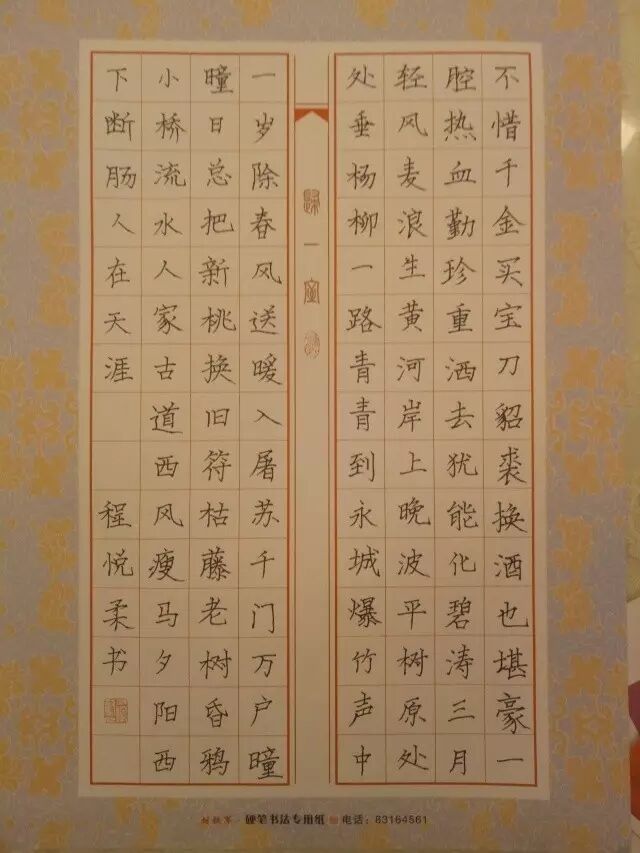 不惜千金买宝刀貂裘换酒也堪豪一
腔热血勤珍重洒去犹能化碧涛三月
轻风麦浪生黄河岸上晚波平树原处
处垂杨柳一路青青到永城爆竹声中
一岁除春风送暖入屠苏千门万户曈
曈日总把新桃换旧符枯藤老树昏鸦
小桥流水人家古道西风瘦马夕阳西
下断肠人在天涯
程悦柔书
硬笔书法专用纸 电话：83164561